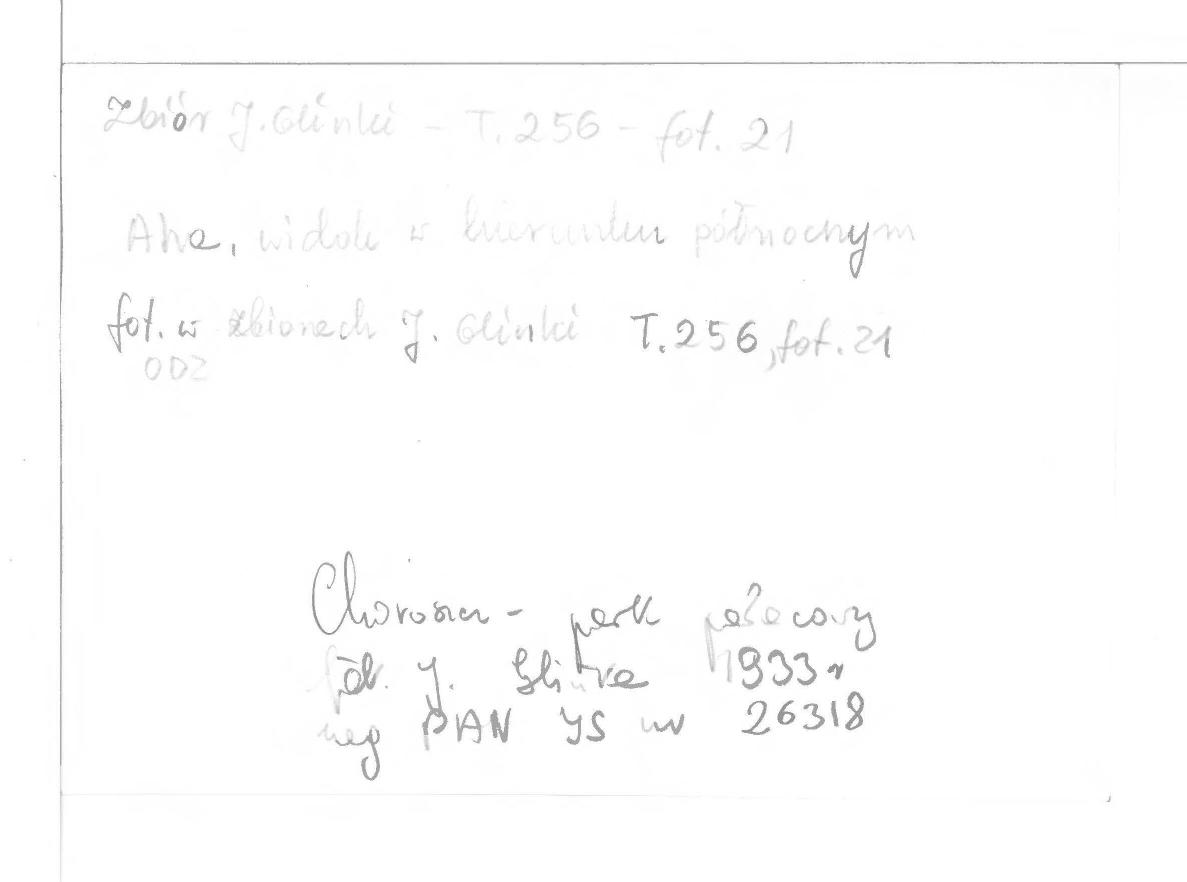 Zbiór J. Glinki - T. 256 - fot. 21
widok w kierunku północnym
fot. w zbiorach J. Glinki T. 256, fot. 21
ODZ
Choroszcz - park pałacowy
fot. J. Glinka 1933 r
neg PAN IS nr 26318